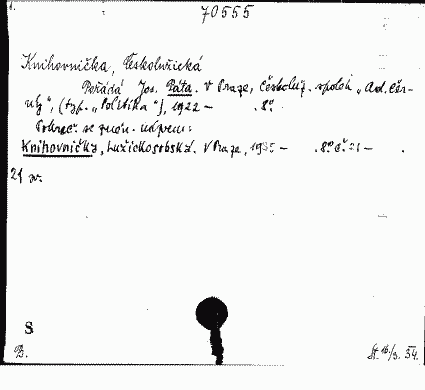 70555
Knihovnička, Českolužická
Pořádá Jos. Páta. V Praze, Českoluž. spolek „Ad. Čer-
ný", (typ. „Politika"), 1922 – 8°.
Pokrač. se změn. názvem:
Knihovnička, Lužickosrbská. V Praze, 193 – 8° č. 21 – .
21 sv.
S
B. St. 16/3. 34.